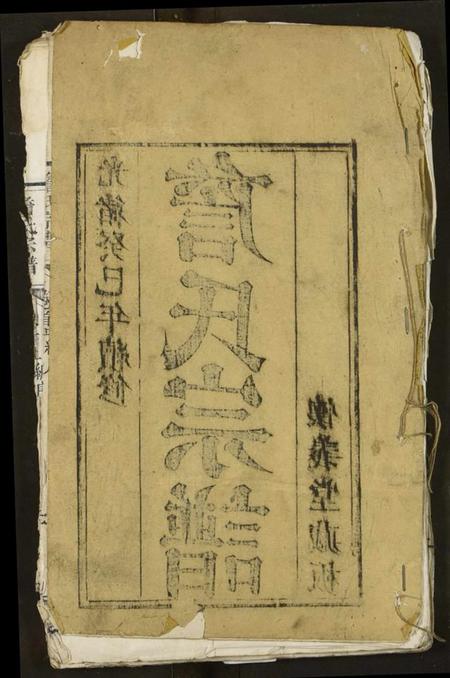 光緒癸巳年續修
詹氏宗譜
懷義堂藏板